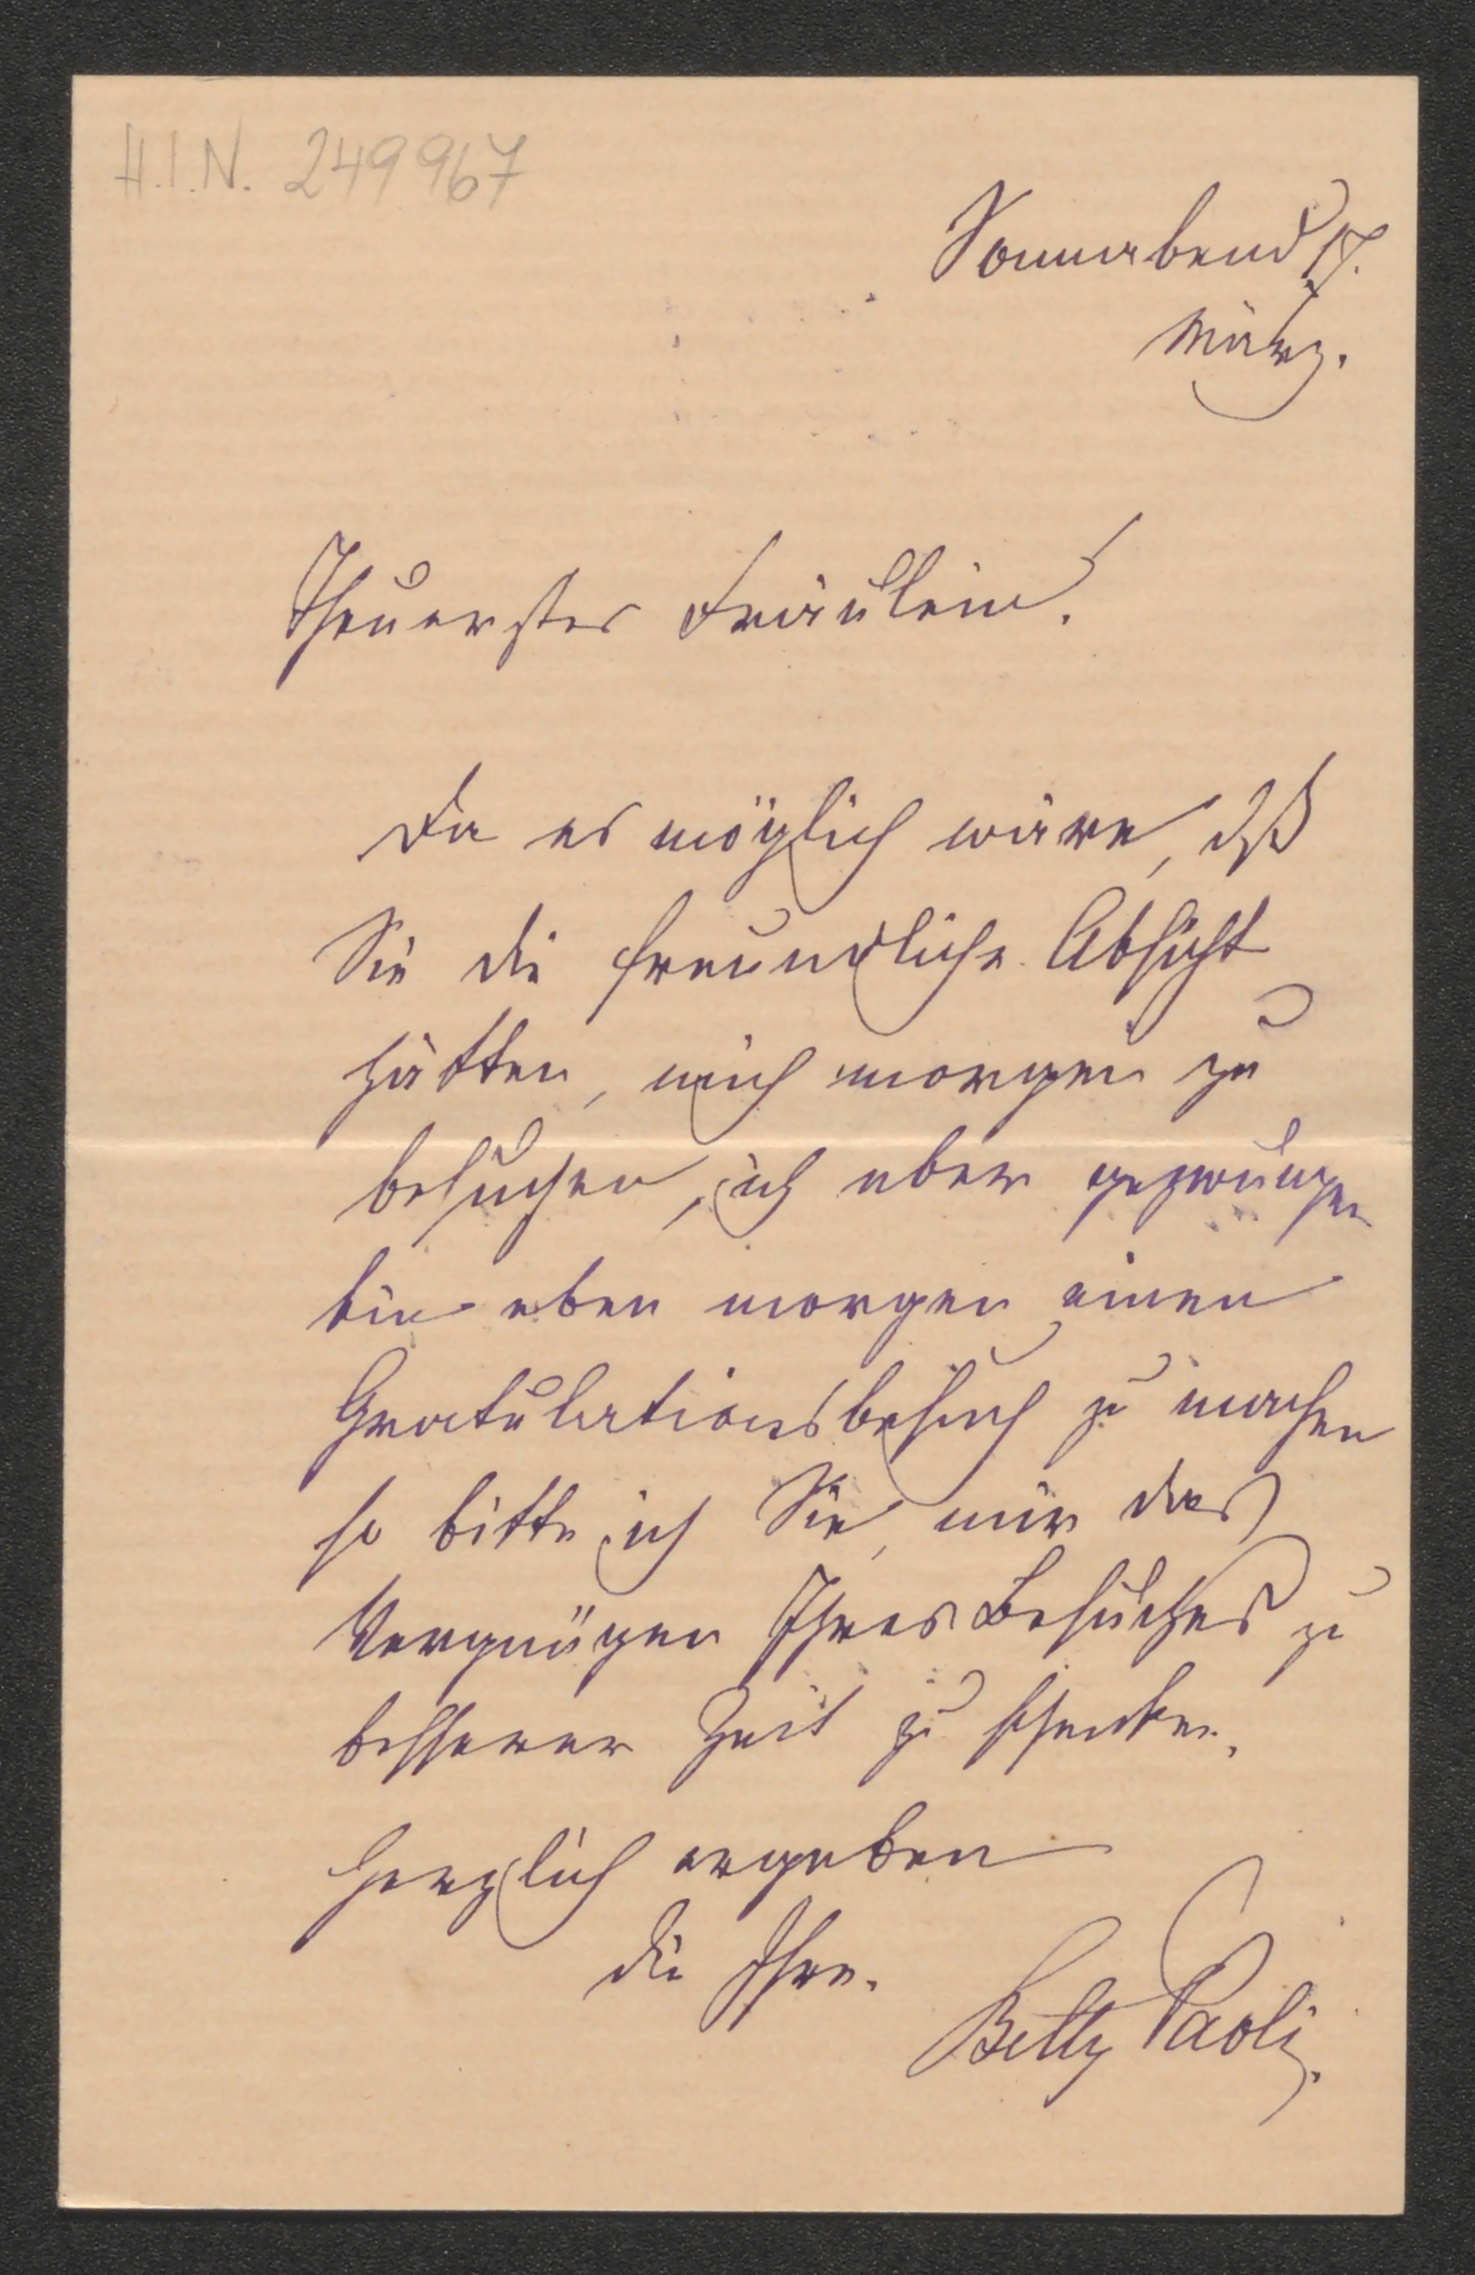 H.I.N. 249967
Sonnabend 17.
März.
Theuerstes Fräulein!
Da es möglich wäre, dß
Sie die freundliche Absicht
hätten, mich morgen zu
besuchen, ich aber gezwungen
bin eben morgen einen
Gratulationsbesuch zu machen
so bitte ich Sie, mir das
Vergnügen Ihres Besuches zu
besserer Zeit zu schenken.
Herzlich ergeben
die Ihre.
Betty Paoli.